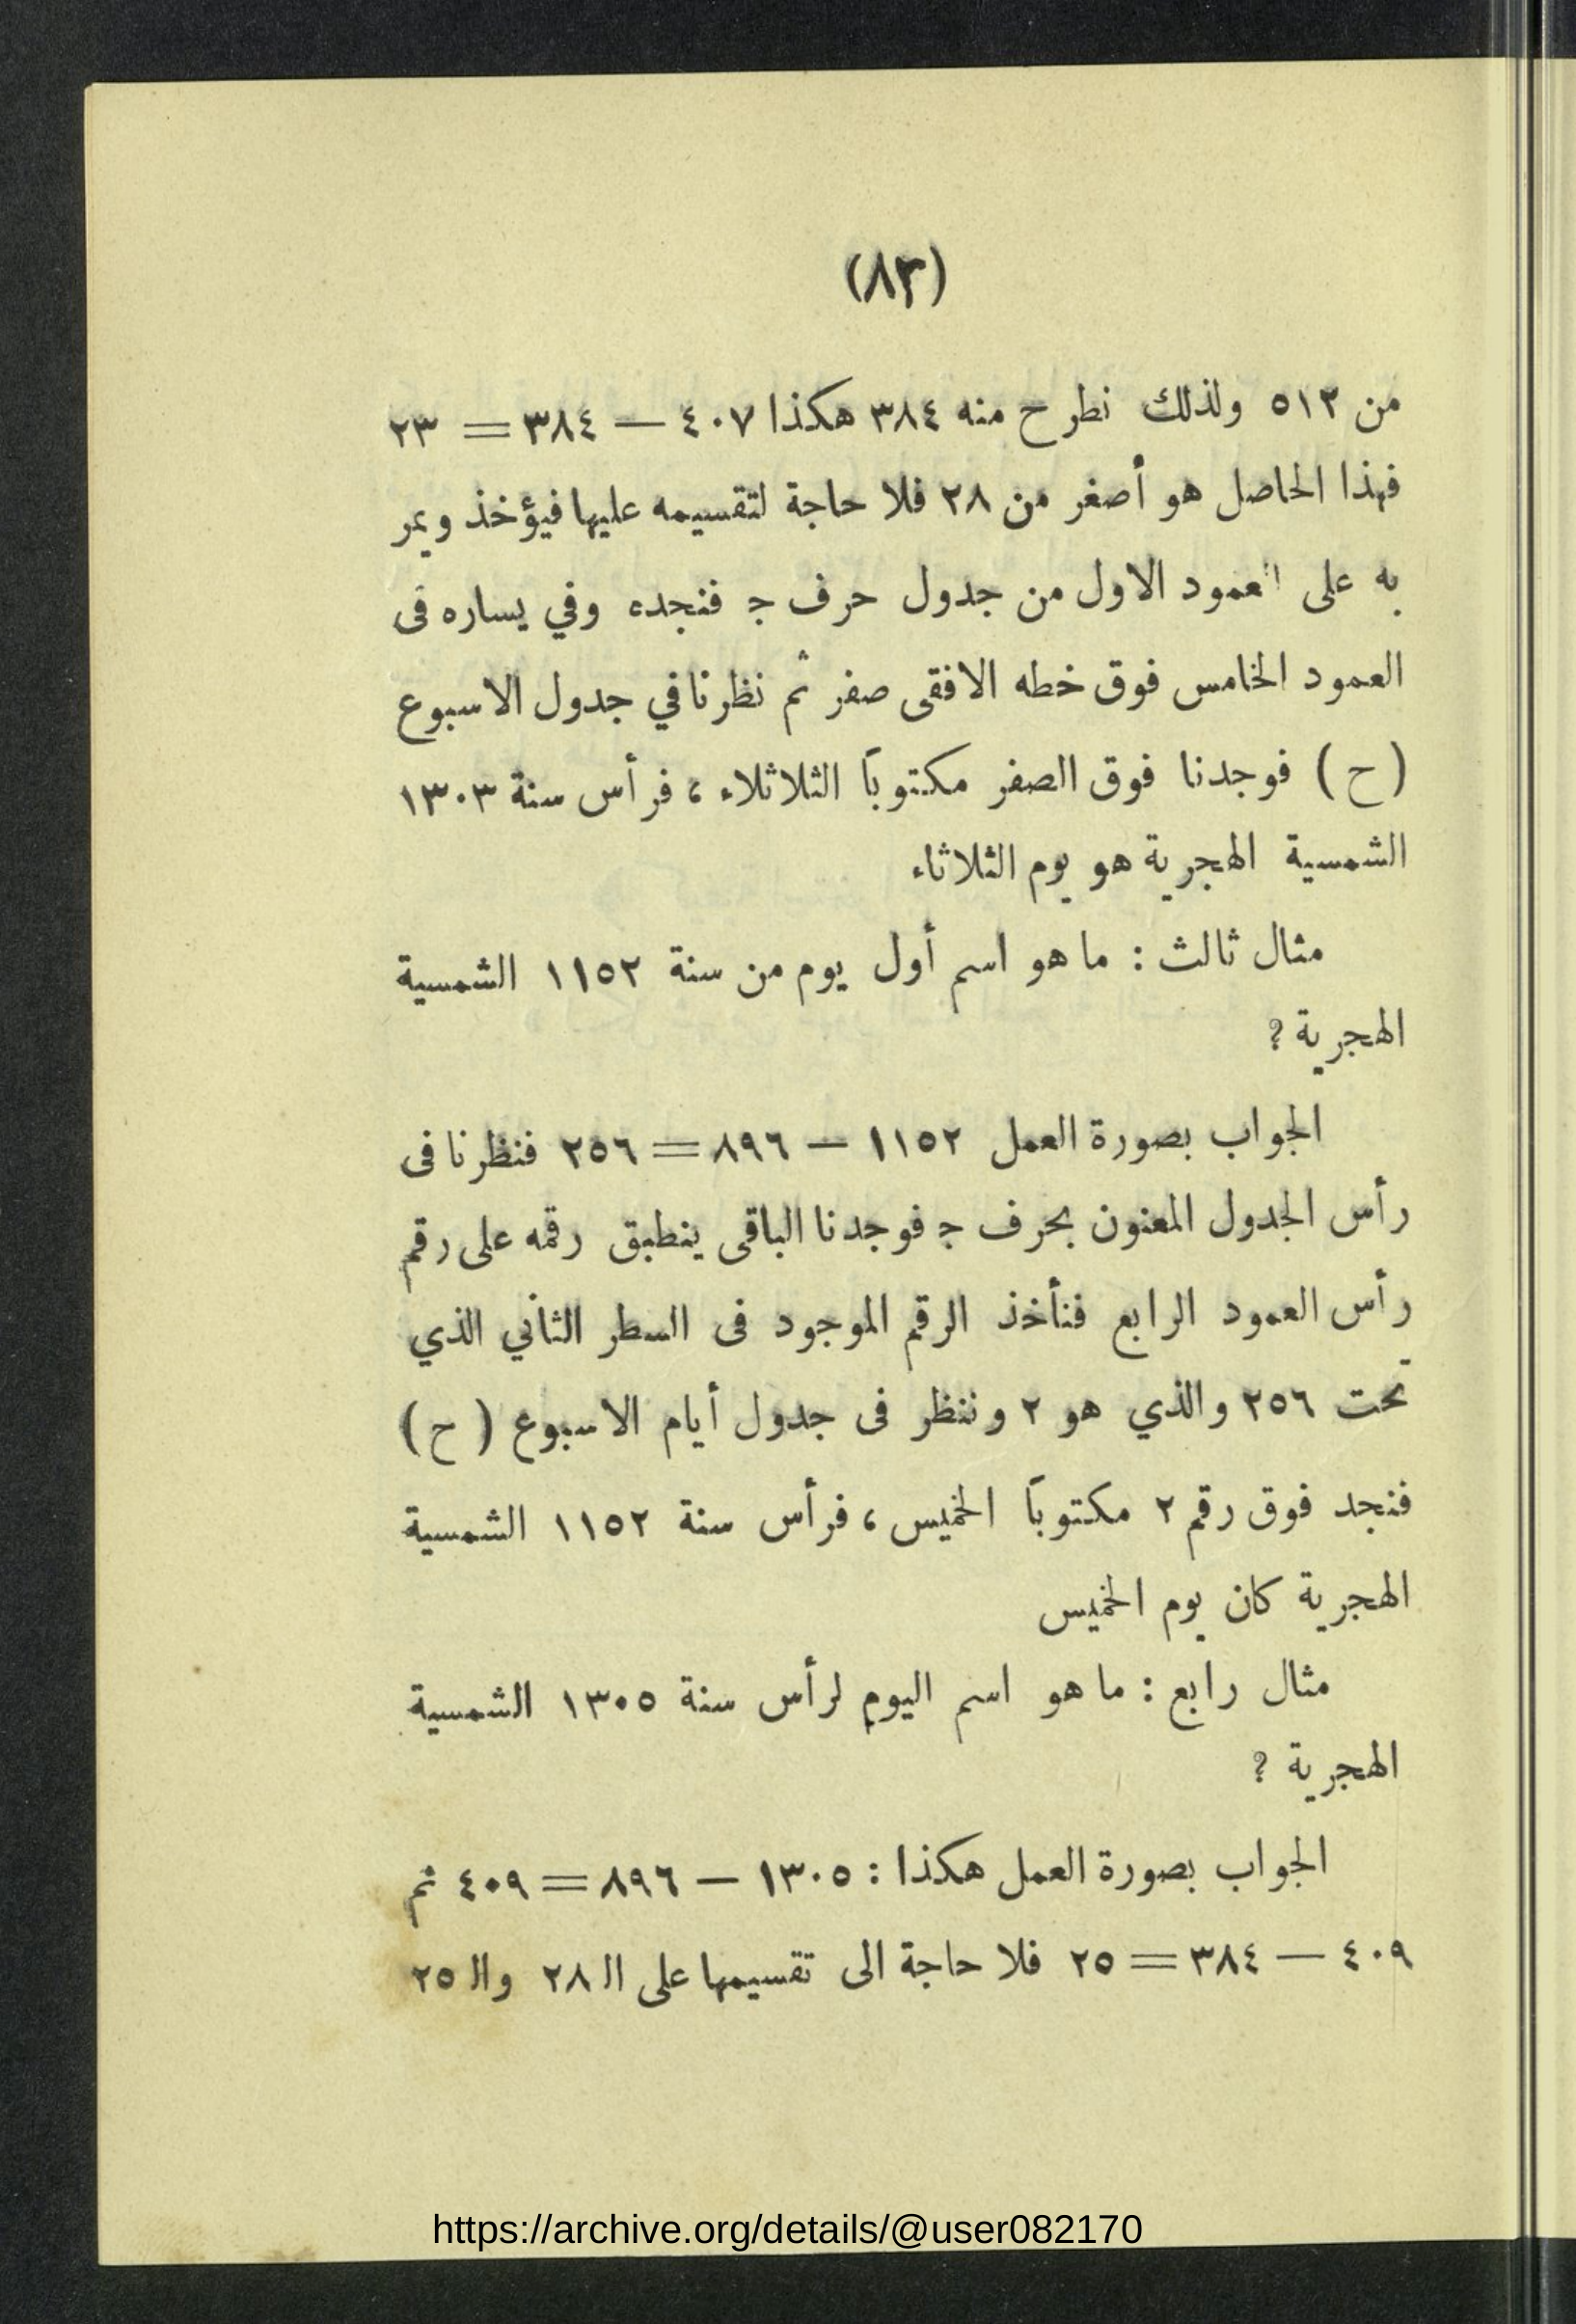 (٨٣)
من ٥١٢ ولذلك نطرح منه ٣٨٤ هكذا ٤٠٧ — ٣٨٤ = ٢٣
فهذا الحاصل هو أصغر من ٢٨ فلا حاجة لتقسيمه عليها فيؤخذ ويمر
به على العمود الاول من جدول حرف ج فنجده وفي يساره فى
العمود الخامس فوق خطه الافقى صفر ثم نظرنا في جدول الاسبوع
(ح) فوجدنا فوق الصفر مكتوباً الثلاثلاء ، فرأس سنة ١٣٠٣
الشمسية الهجرية هو يوم الثلاثاء
مثال ثالث : ما هو اسم أول يوم من سنة ١١٥٢ الشمسية
الهجرية ؟
الجواب بصورة العمل ١١٥٢ — ٨٩٦ = ٢٥٦ فنظرنا فى
رأس الجدول المعنون بحرف ج فوجدنا الباقى ينطبق رقمه على رقم
رأس العمود الرابع فنأخذ الرقم الموجود فى السطر الثاني الذي
تحت ٢٥٦ والذي هو ٢ وننظر فى جدول أيام الاسبوع (ح)
فنجد فوق رقم ٢ مكتوباً الخميس ، فرأس سنة ١١٥٢ الشمسية
الهجرية كان يوم الخميس
مثال رابع : ما هو اسم اليوم لرأس سنة ١٣٠٥ الشمسية
الهجرية ؟
الجواب بصورة العمل هكذا : ١٣٠٥ — ٨٩٦ = ٤٠٩ ثم
٤٠٩ — ٣٨٤ = ٢٥ فلا حاجة الى تقسيمها على الـ ٢٨ والـ ٢٥
https://archive.org/details/@user082170